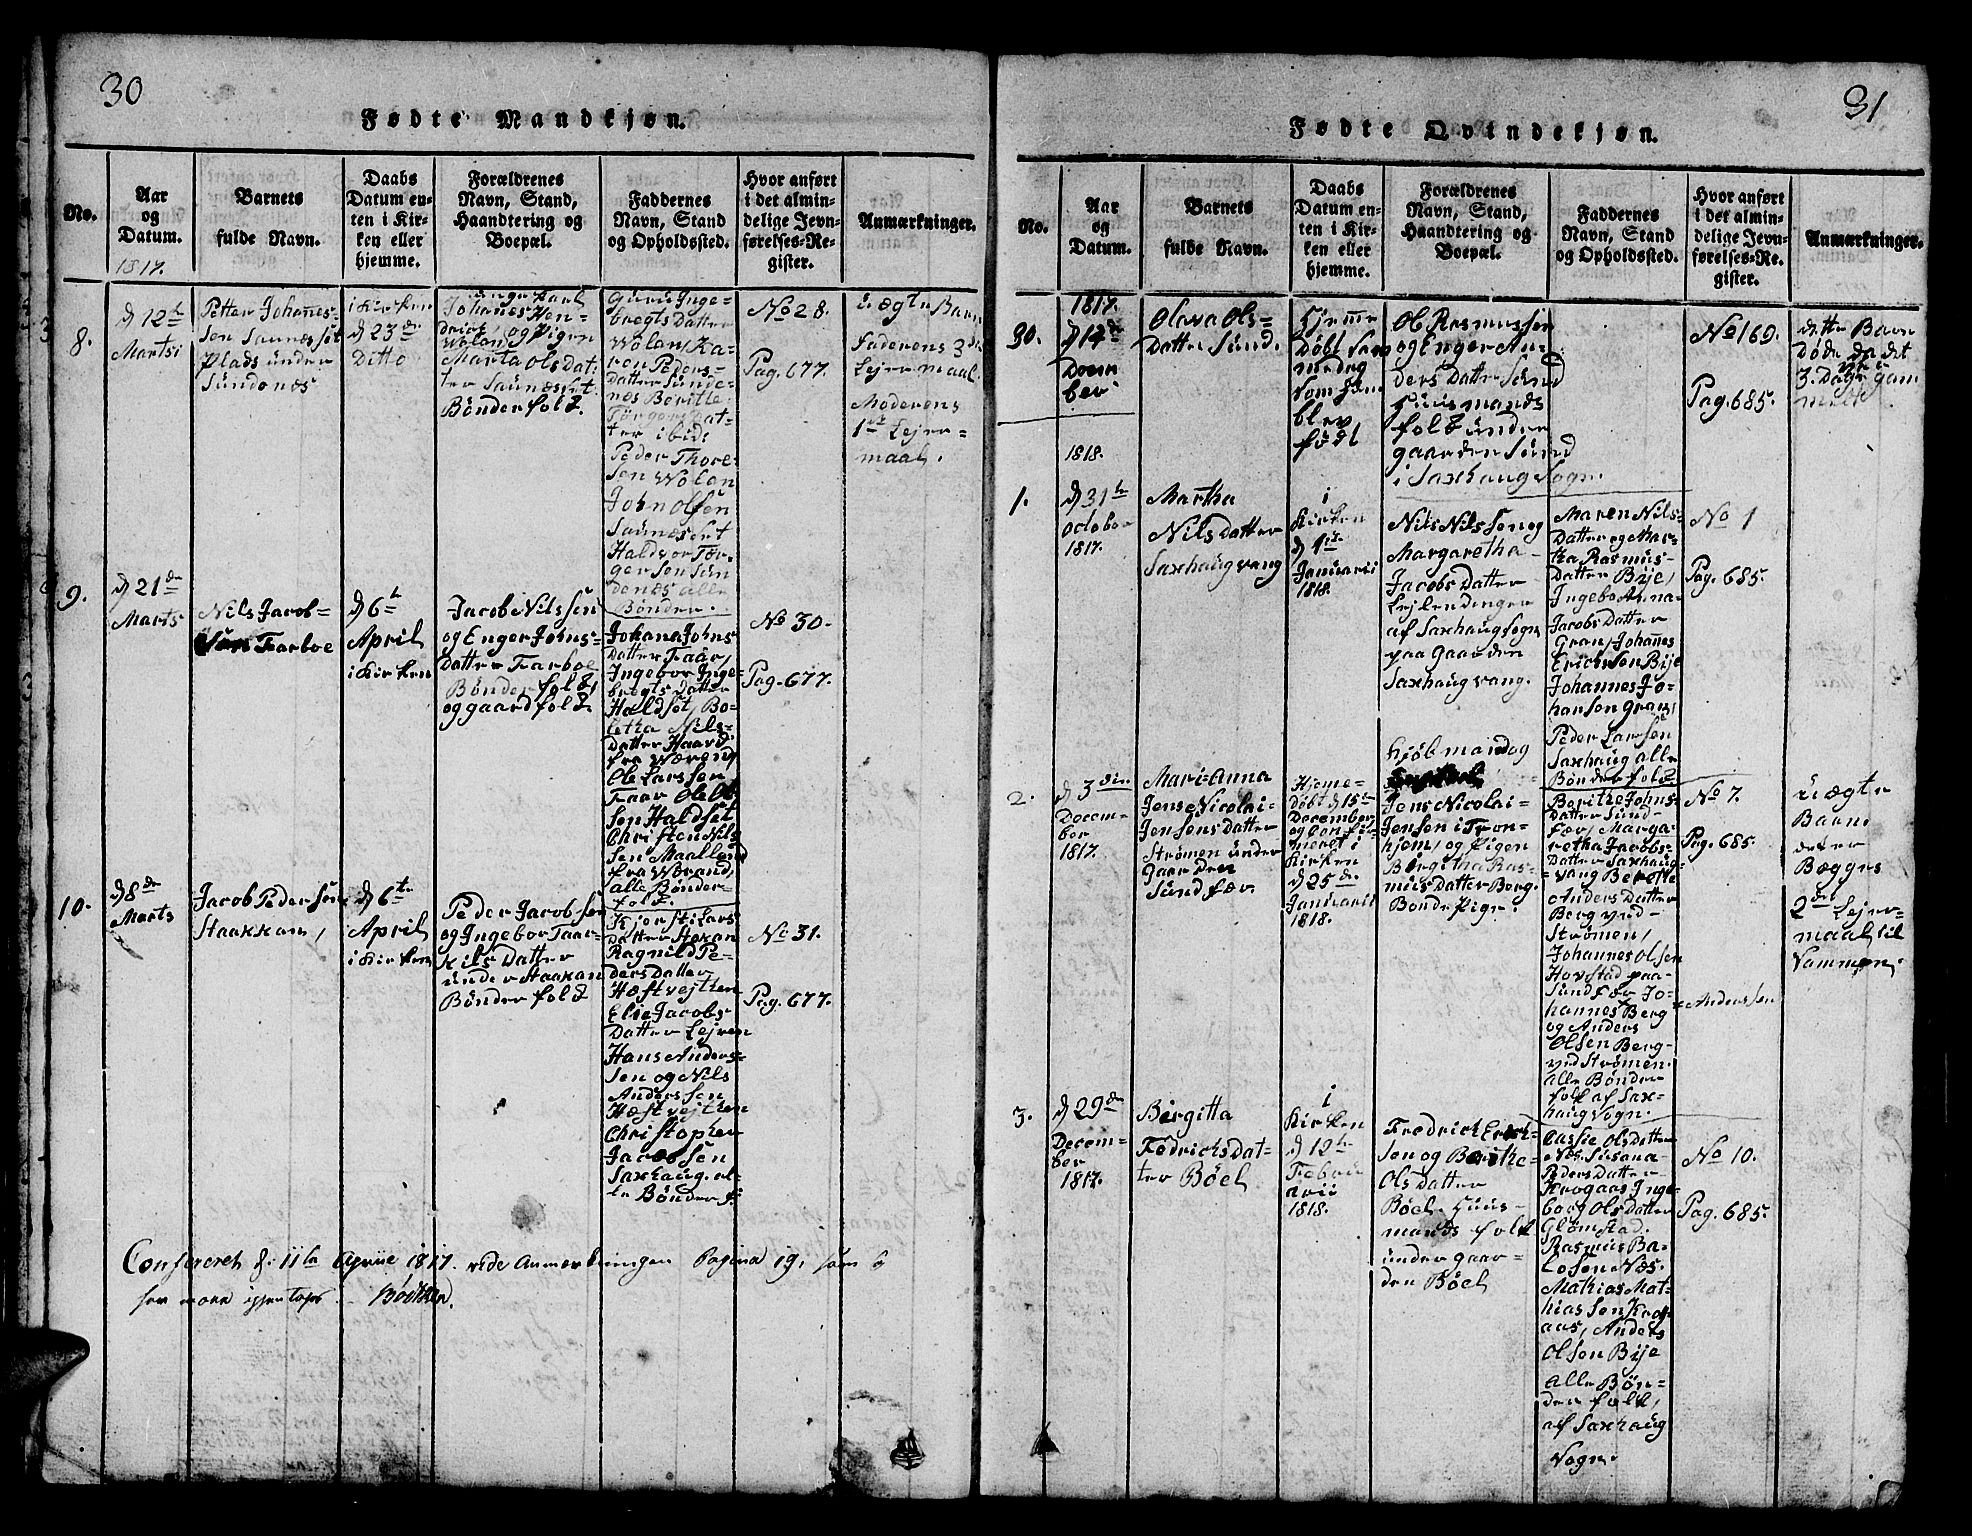 30
Fødte Mandkjøn.
No.
Aar
og
Datum.
1817.
Barnets
fulde Navn.
Daabs
Datum en-
ten i Kir-
ken eller
hjemme.
Forældrenes
Navn, Stand,
Haandtering og
Boepæl.
Faddernes
Navn, Stand
og Opholdssted.
Hvor anført
i det almin-
delige Jevn-
førelses-Re-
gister.
Anmærkninger.
8.
d 12te
Martsi
Petter Johañes-
Sen Saunesset
Plads under
Sundenæs
i Kirken
d 23de
Ditto
Ungekarl
Johañes Hen-
drick
Wolan og Pigen
Marta Olsdat-
ter Saunesset.
Bønderfolk.
Guru Inge-
bregts Datter
Wolan, Ka-
ren Peders-
datter Sunde-
nes Beritte
Törgersdat-
ter ibid:
Peder Thore-
sen Wolan
John Olsen
Saunesset
Haldvor Tør-
gersen Sun
denæs alle
Bønder.
No 28.
Pag. 677.
uægte Barn
Faderens 3die
Lejermaal
Moderens
1ste Lejer-
maal.
9.
d 21de
Marts
Nils Jacob-
Sen Faarboe
d 6te
April
i Kirken
Jacob Nilssen
og Enger Johns-
Datter Faarboe
Bønderfolk,
og gaardfolk
Johana Johns
Datter Faar,
Ingebor Inge-
bregts Datter
Haldset, Bo-
letha Nils-
Datter Haard
fra Wæren,
Ole Larssen
Faar Ole Ol
Sen Haldset
Christen Nils
Sen Maallen
fra Wærand,
alle Bønder-
folk.
No 30.
Pag. 677.
10.
d 8de
Marts
Jacob Pedersen
Haakkan,
d 6te
April
i Kirken
Peder Jacobsen
og Ingebor Taar-
kils Datter
under Haakan
Bønderfolk
Kjersti Lars
Datter Hakan
Ragnild Pe-
ders Datter
Hæstvejten
Elie Jacobs
Datter Lejren
Hans Anders-
Sen og Nils
Anderssen
Hæstvejten
Christopher
Jacobsen
Saxhaug. al-
le Bønder f:
No 31.
Pag. 677.
Confereret d: 11te Aprill 1817. vide Anmerkningen Pagina 19, som
Bödtker.
31
Fødte Qvindekjøn.
No.
Aar
og
Datum.
Barnets
fulde Navn.
Daabs
Datum en-
ten i Kir-
ken eller
hjemme.
Forældrenes
Navn, Stand,
Haandtering og
Boepæl.
Faddernes
Navn, Stand
og Opholdssted.
Hvor anført
i det almin-
delige Jevn-
førelses-Re-
gister.
Anmærkninger.
30.
1817.
d 14de
Decem
ber
Olava Ols-
Datter Sund.
Hjeme
Døbt Sam
me dag
som han
blev
født
Ol Rasmussen
og Enger An-
ders Datter Sund
Huusmands
folk under
gaarden Sund
i Saxhaug Sogn.
No 169.
Pag. 685.
dette Barn
Døde da det
var
3. Dage gam
melt
1818.
1.
d 31te
October
1817.
Martha
Nils Datter
Saxhaugvang
i
Kirken
d 1ste
Januarii
1818.
Nils Nilssen og
Margaretha
Jacobs Datter
Lejlendinger
af Saxhaug sogn
paa Gaarden
Saxhaugvang.
Maren Nils-
Datter og Mar-
tha Rasmus-
Datter Bije,
Ingebor Anna
Jacobs Datter
Gran, Johañes
Erichsen Bije
Johannes Jo-
hansen Gran,
Peder Larsen
Saxhaug alle
Bønderfolk
No 1
Pag. 685.
2.
d 3die
Decem-
ber
1817.
Mari-Anna
Jens Nicolai-
Jensens Datter
Strömen under
Gaarden
Sundfær
Hjeme-
Døbt d 15de
December
og Confir-
meret i
Kirken
d 25de
Januarii
1818.
Kjøbmand og
Jens Nicolai-
Jensen i Tron-
hjem, og Pigen
Bergitha Ras-
mus Datter Berg.
Bonde Pige.
Berithe Johns-
Datter Sund-
fær, Marga-
retha Jacobs-
Datter Saxhaug-
vang Berette
Anders Datter
Berg ved-
Strömen,
Johannes Olsen
Hovstad paa
Sundfær Jo-
hannes Berg
og Anders
Olsen Berg-
ved Strömen.
alle Bønder
folk af Sax-
haug Sogn.
No 7.
Pag. 685.
=Anderssen
uægte
Baand
deres
Bægges
2den Lejer-
maal til
Sammen.
3.
d 29de
Decem-
ber
1817.
Birgitta
Fedrichsdat-
ter Böel
i
Kirken
d 12te
Febru
arii
1818.
Fredrich Erich-
Sen og Berithe-
Ols Datter
Böel. Huus-
mands folk
under gaar-
den Böel
Cassie Ols Datter
Næs Susana
Peders Datter
Krogaas Inge-
borg Ols Datter
Glömstad.
Rasmus Ba-
losen Næs.
Mathias Mat-
hias Sen Krog-
aas, Anders
Olsen Bije
Alle Bøn-
der folk,
af Saxhaug
Sogn.
No 10.
Pag. 685.